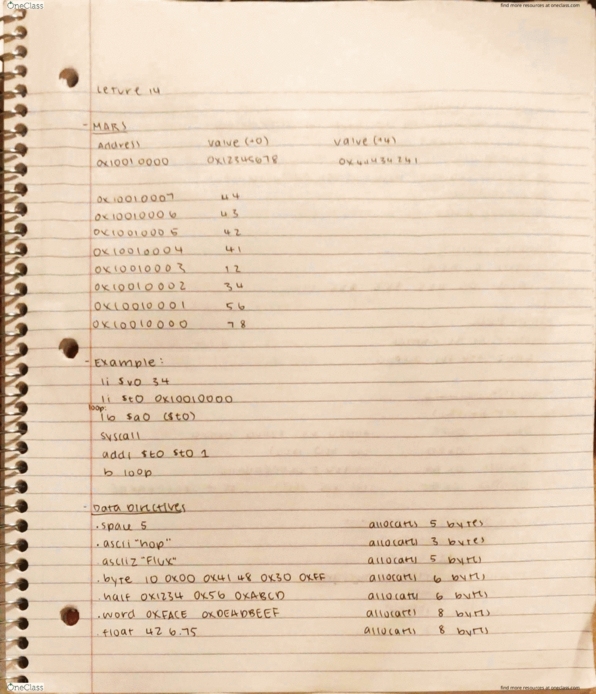 OneClass
find more resources at oneclass.com
Lecture 14
- MARS
Address Value (+0) Value (+4)
0x10010000 0x12345678 0x44434241
0x10010007 44
0x10010006 43
0x10010005 42
0x10010004 41
0x10010003 12
0x10010002 34
0x10010001 56
0x10010000 78
- Example:
li $v0 34
li $t0 0x10010000
loop:
lb $a0 ($t0)
syscall
addi $t0 $t0 1
b loop
- Data Directives
.space 5 allocates 5 bytes
.ascii "hop" allocates 3 bytes
asciiz "Flux" allocates 5 bytes
.byte 10 0x00 0x41 48 0x30 0xFF allocates 6 bytes
.half 0x1234 0x56 0xABCD allocates 6 bytes
.word 0xFACE 0xDEADBEEF allocates 8 bytes
.float 42 6.75 allocates 8 bytes
OneClass
find more resources at oneclass.com